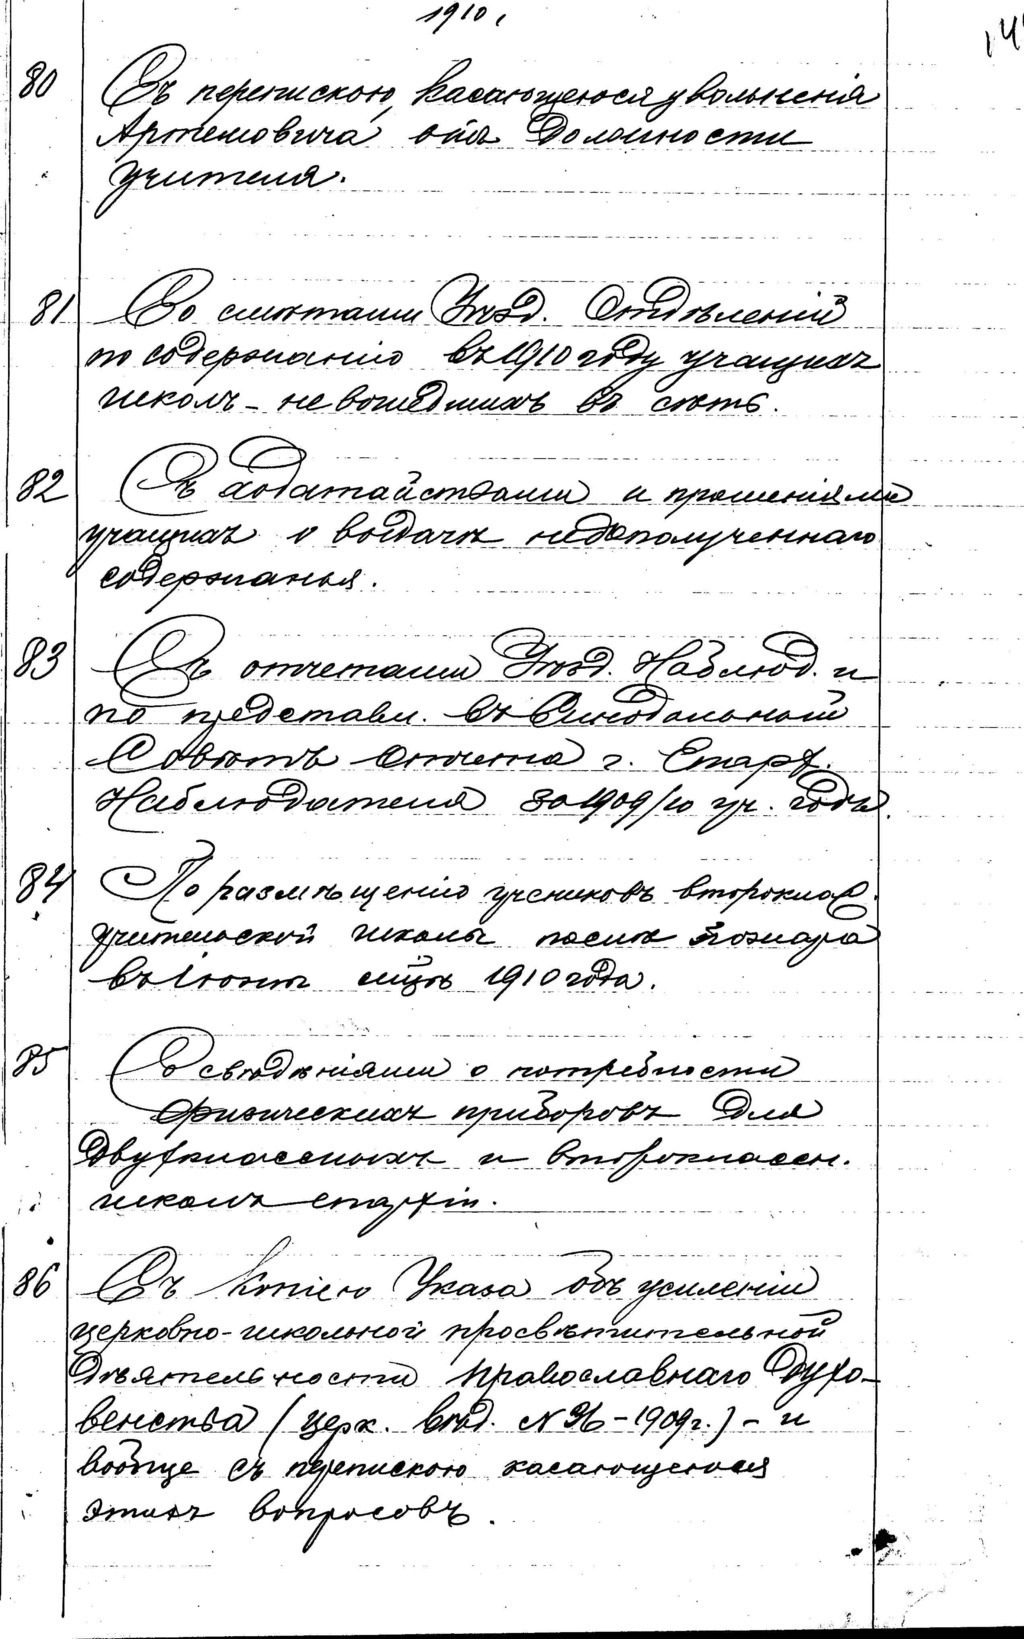 1910 г.
80 Съ перепискою, касающеюся увольненія
Артемовича отъ должности
учителя.
81 Со смѣтами Уѣзд. Отдѣленій
по содержанію въ 1910 году учащихъ
школъ - невошедшихъ въ сѣть.
82 Съ ходатайствами и прошеніями
учащихъ о выдачѣ недополученнаго
содержанья.
83 Съ отчетами Уѣзд. Наблюд. и
по представл. въ Синодальный
Совѣтъ Отчета г. Епарх.
Наблюдателя за 1909/10 уч. годъ.
84 По размѣщенію учениковъ второклас.
учительской школы послѣ пожара
въ Іюнѣ мцѣ 1910 года.
85 Со свѣдѣніями о потребности
физическихъ приборовъ для
двухклассныхъ и второклассн.
школъ епархіи.
86 Съ копіею Указа объ усиленіи
церковно-школьной просвѣтительной
дѣятельности православнаго Духо-
венства (Церк. вѣд. № 36 - 1909 г.) - и
вообще съ перепискою касающеюся
этихъ вопросовъ.